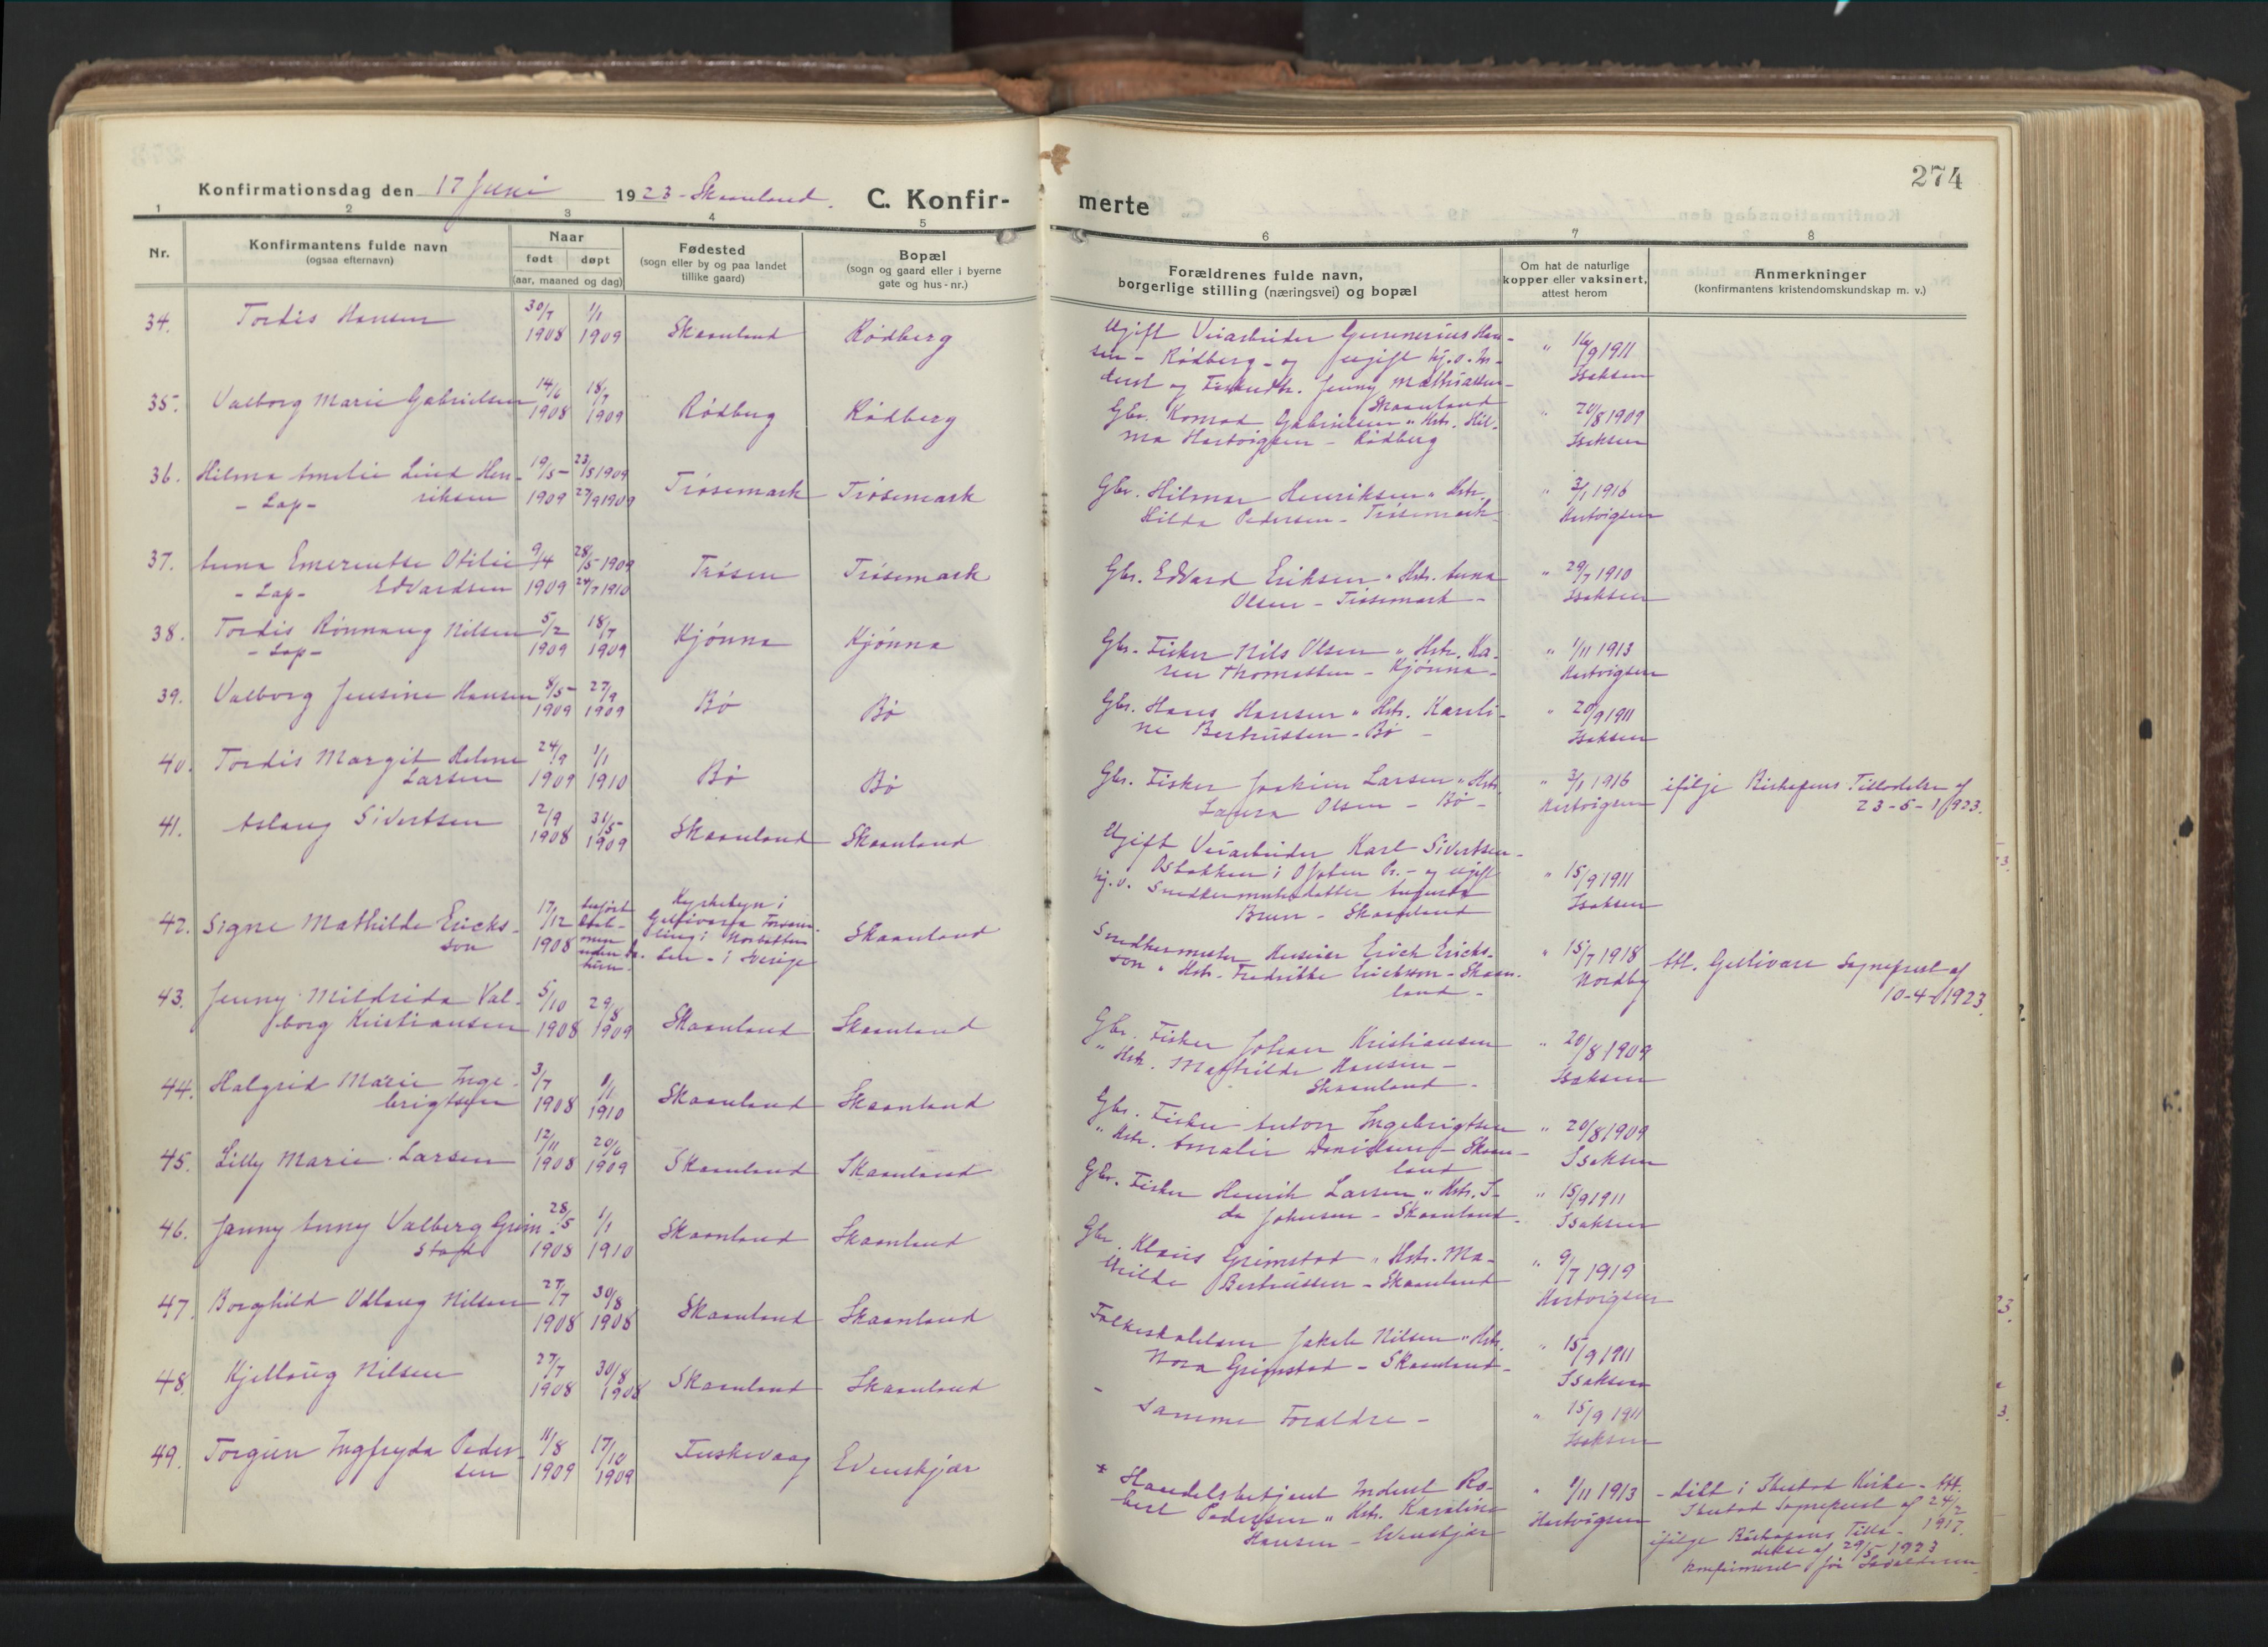 274
Konfirmationsdag den 17 Juni 1923 - Skaanland. C. Konfir-
merte
1 2 3 4 5
6 7 8
Nr.
Konfirmantens fulde navn
(ogsaa efternavn)
Naar
født døpt
(aar, maaned og dag)
Fødested
(sogn eller by og paa landet
tillike gaard)
Bopæl
(sogn og gaard eller i byerne
gate og hus-nr.)
Forældrenes fulde navn,
borgerlige stilling (næringsvei) og bopæl
Om hat de naturlige
kopper eller vaksinert,
attest herom
Anmerkninger
(konfirmantens kristendomskundskap m. v.)
34. Tordis Hansen 30/7 1/1
1908 1909 Skaanland Rødberg
Ugift Veiarbeider Gunnerius Han-
sen - Rødberg - og ugift hj. v. In-
derst og Jenny Mathiassen -
Skaanland
" 16/9 1911
Isaksen
35. Valborg Marie Gabrielsen 14/6 18/7
1908 1909 Rødberg Rødberg
Gbr. Konrad Gabrielsen " Hstr. Hil-
ma Hartvigsen - Rødberg
" 20/8 1909
Isaksen
36. Hilma Amelie Lind Hen- 19/5 - 23/5 1909
- Lap - riksen 1909 27/9 1909
Trøsemark Trøsemark
Gbr. Hilmar Henriksen " Hstr.
Hilda Pedersen - Trøsemark -
" 3/1 1916
Hartvigsen
37. Anna Emerentse Otilie 9/4 28/5 - 1909
- Lap - Edvardsen 1909 24/7 1910
Trøsen Trøsemark
Gbr. Edvard Eriksen " Hstr. Anna
Olsen - Trøsemark -
" 29/7 1910
Isaksen
38. Tordis Rønnaug Nilsen 5/2 18/7
- Lap - 1909 1909
Kjønna Kjønna
Gbr. Fisker Nils Olsen " Hstr. Ka-
ren Thomassen - Kjønna -
" 1/11 1913
Hartvigsen
39. Valborg Jensine Hansen 8/5 - 27/9
1909 1909
Bø Bø
Gbr. Hans Hansen " Hstr. Karoli-
ne Berteussen - Bø -
" 20/9 1911
Isaksen
40. Tordis Margit Helene 24/9 1/1
Larsen 1909 1910
Bø Bø
Gbr. Fisker Joakim Larsen " Hstr.
Laura Olsen - Bø -
" 3/1 1916
Hartvigsen
ifølge Biskopens Tilladelse af
23-5-1923.
41. Aslaug Sivertsen 2/9 31/5 -
1908 1909
Skaanland Skaanland
Ugift Veiarbeider Karl Sivertsen -
i Ofoten Pr. - og ugift
hj. v. Snedkermesterdatter Augusta
Brun - Skaanland
" 15/9 1911
Isaksen
42. Signe Mathilde Ericks- 17/12
son 1908
Kyrkobyn i
Gellivaara Forsam-
ling i Norbotten
Län - i Sverige
Skaanland
Snedkermester Erick Ericks-
son " Hstr. Fredrikke Ericksson - Skaan-
land -
" 15/7 1918
Nordby
Att. Gellivare Sogneprest af
10-4-1923.
43. Jenny Mildrida Val- 5/10 29/8
borg Kristiansen 1908 1909
Skaanland Skaanland
Gbr. Fisker Johan Kristiansen
" Hstr. Mathilde Hansen -
Skaanland -
" 20/8 1909
Isaksen
44. Halgrid Marie Inge- 3/7 1/1
brigtsen 1908 1910
Skaanland Skaanland
Gbr. Fisker Anton Ingebrigtsen
" Hstr. Amalie Danielsen - Skaan-
land
" 20/8 1909
Isaksen
45. Lilly Marie Larsen 12/11 20/6
1908 1909
Skaanland Skaanland
Gbr. Fisker Henrik Larsen " Hstr. I-
da Johnsen - Skaanland -
" 15/9 1911
Isaksen
46. Janny Anny Valberg Grim- 28/5 1/1
stad 1908 1910
Skaanland Skaanland
Gbr. Klaus Grimstad " Hstr. Ma-
thilde Berteussen - Skaanland
" 9/7 1919
Hartvigsen
47. Borghild Odlaug Nilsen 27/7 30/8
1908 1908
Skaanland Skaanland
Folkeskolelærer Jakob Nilsen " Hstr.
Nora Grimstad - Skaanland -
" 15/9 1911
Isaksen
48. Kjellaug Nilsen 27/7 30/8
1908 1908
Skaanland Skaanland
- Samme Foraldre -
" 15/9 1911
Isaksen
49. Torgun Ingfryda Peder- 11/8 17/10
sen 1909 1909
Fuskevaag Evenskjær
* Handelsbetjent Inderst Ro-
bert Pedersen " Hstr. Karoline
Hansen - Evenskjær
" 1/11 1913
Hartvigsen
- døbt i Ibestad Kirke - Att.
Ibestad Sogneprest af 24/2
1917.
ifølge Biskopens Tilla-
delse af 29/5 1923
konfirmeret før